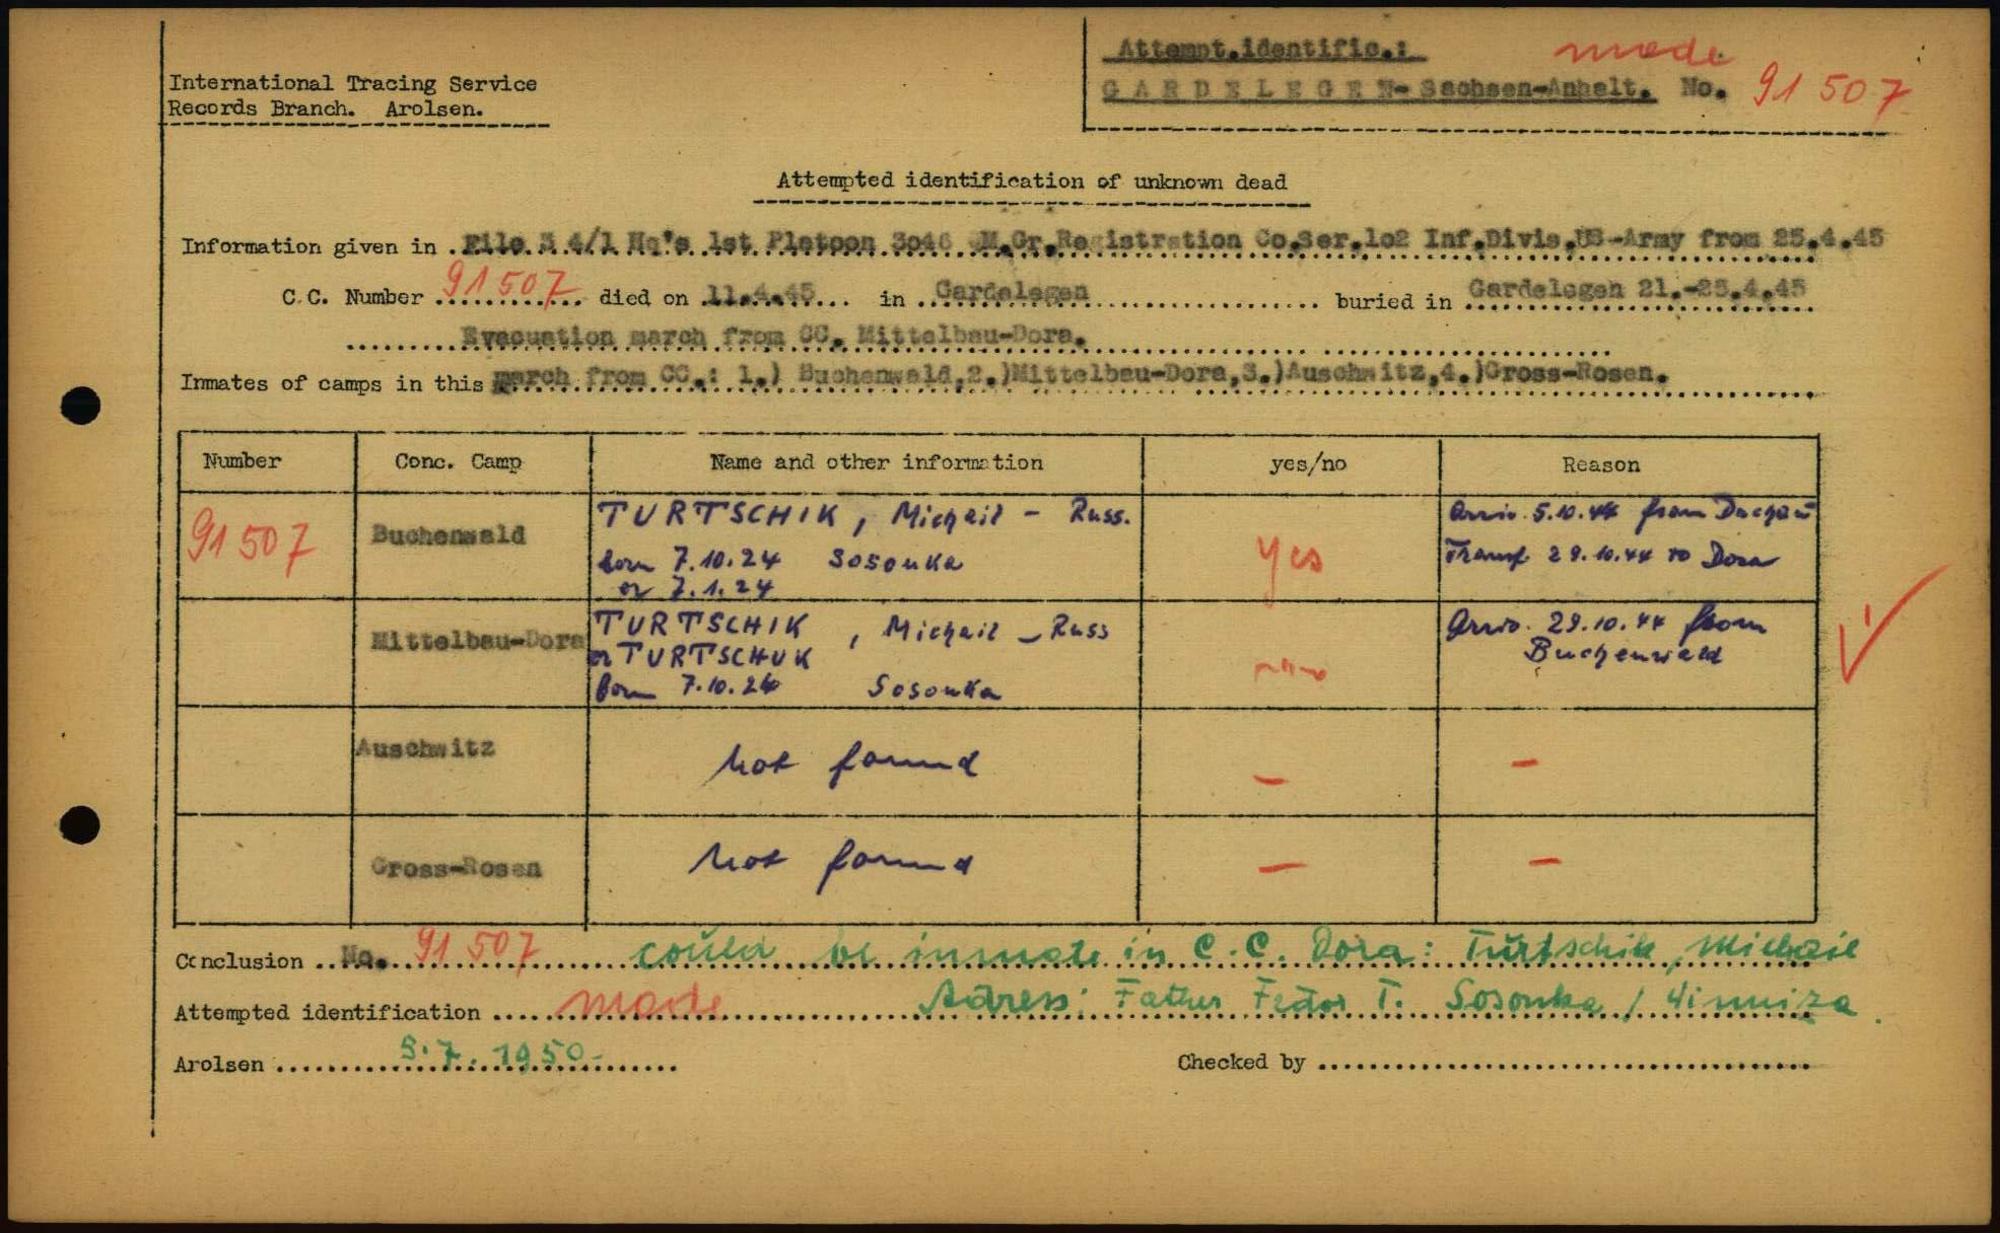 Attempt.identific.: made
International Tracing Service
Records Branch. Arolsen.
GARDELEGEN- Sachsen-Anhalt. No. 91 507
Attempted identification of unknown dead
Information given in File 4/1 Hq's 1st Platoon 3046 Gr.Registration Co.Ser.1o2 Inf.Divis.US-Army from 25.4.45
C.C. Number 91507 died on 11.4.45 in Gardelegen buried in Gardelegen 21.-25.4.45
Evacuation march from CC. Mittelbau-Dora.
Inmates of camps in this march from CC.: 1.) Buchenwald,2.)Mittelbau-Dora,3.)Auschwitz,4.)Gross-Rosen.
Number Conc. Camp Name and other information yes/no Reason
91507 Buchenwald TURTSCHIK, Michail - Russ. yes Arriv. 5.10.44 from Dachau
born 7.10.24 Sosonka Transf. 29.10.44 to Dora
or 7.1.24
Mittelbau-Dora TURTSCHIK, Michail - Russ Arriv. 29.10.44 from
or TURTSCHUK Buchenwald
born 7.10.24 Sosonka
Auschwitz not found - -
Gross-Rosen not found - -
Conclusion No. 91 507 could be inmate in C.C. Dora: Turtschik, Michail
Attempted identification made Adress: Father Fedor T. Sosonka / Winniza.
Arolsen 5.7.1950- Checked by